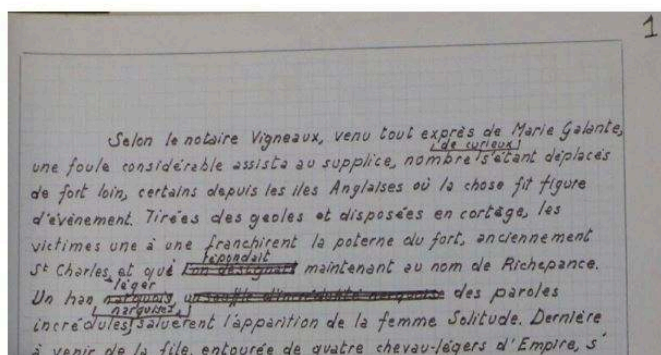 1
Selon le notaire Vigneaux, venu tout exprès de Marie Galante,
de curieux
une foule considérable assista au supplice, nombre s'étant déplacés
de fort loin, certains depuis les iles Anglaises où la chose fit figure
d'évènement. Tirées des geoles et disposées en cortège, les
victimes une à une franchirent la poterne du fort, anciennement
répondait
St Charles, et qui l'on désignait maintenant au nom de Richepance.
léger
Un han narquois, un souffle d'incrédulité narquoise des paroles
narquises,
incrédules saluèrent l'apparition de la femme Solitude. Dernière
à venir de la file, entourée de quatre chevau-légers d'Empire, s'